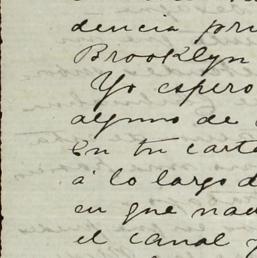 dencia pri
Brooklyn
Yo espero
alguno de
En tu carta
á lo largo d
en que nav
el canal y